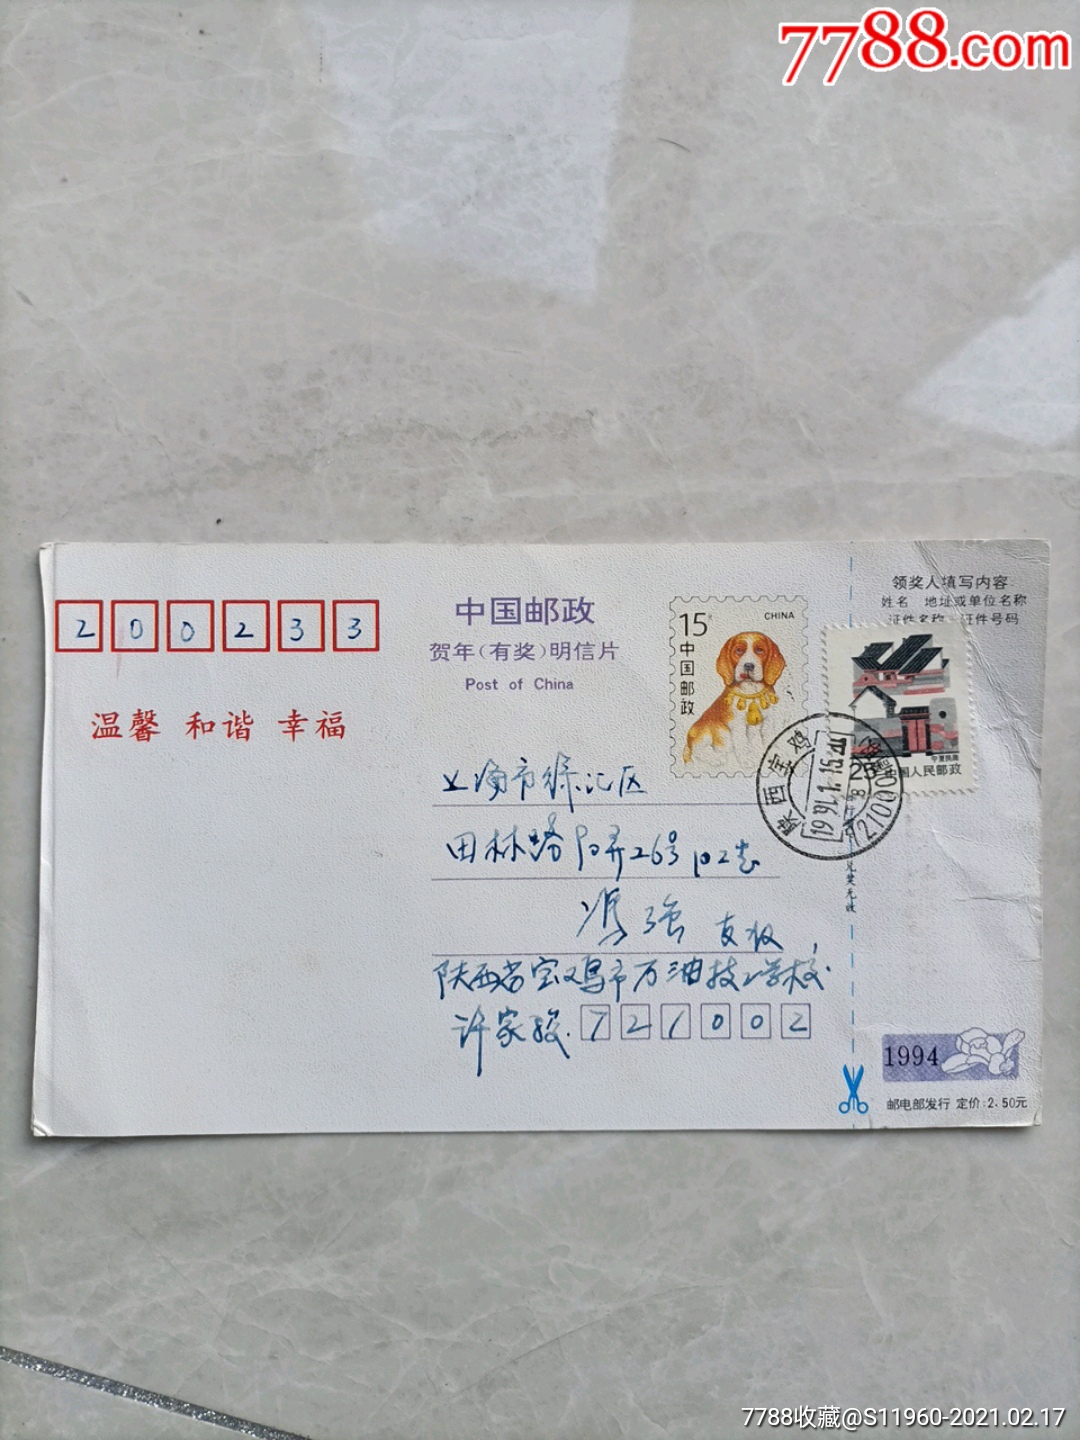 7788.com
领奖人填写内容
姓名 地址或单位名称
证件名称 证件号码
2 0 0 2 3 3
中国邮政
贺年(有奖)明信片
Post of China
15分
CHINA
中国邮政
温馨 和谐 幸福
宁夏民居
25
中国人民邮政
陕西宝鸡
上海市徐汇区
田林路90弄26号102室
冯强 友收
陕西省宝鸡市石油技工学校
许家骏 721002
兑奖无效
1994
邮电部发行 定价:2.50元
7788收藏@S11960-2021.02.17